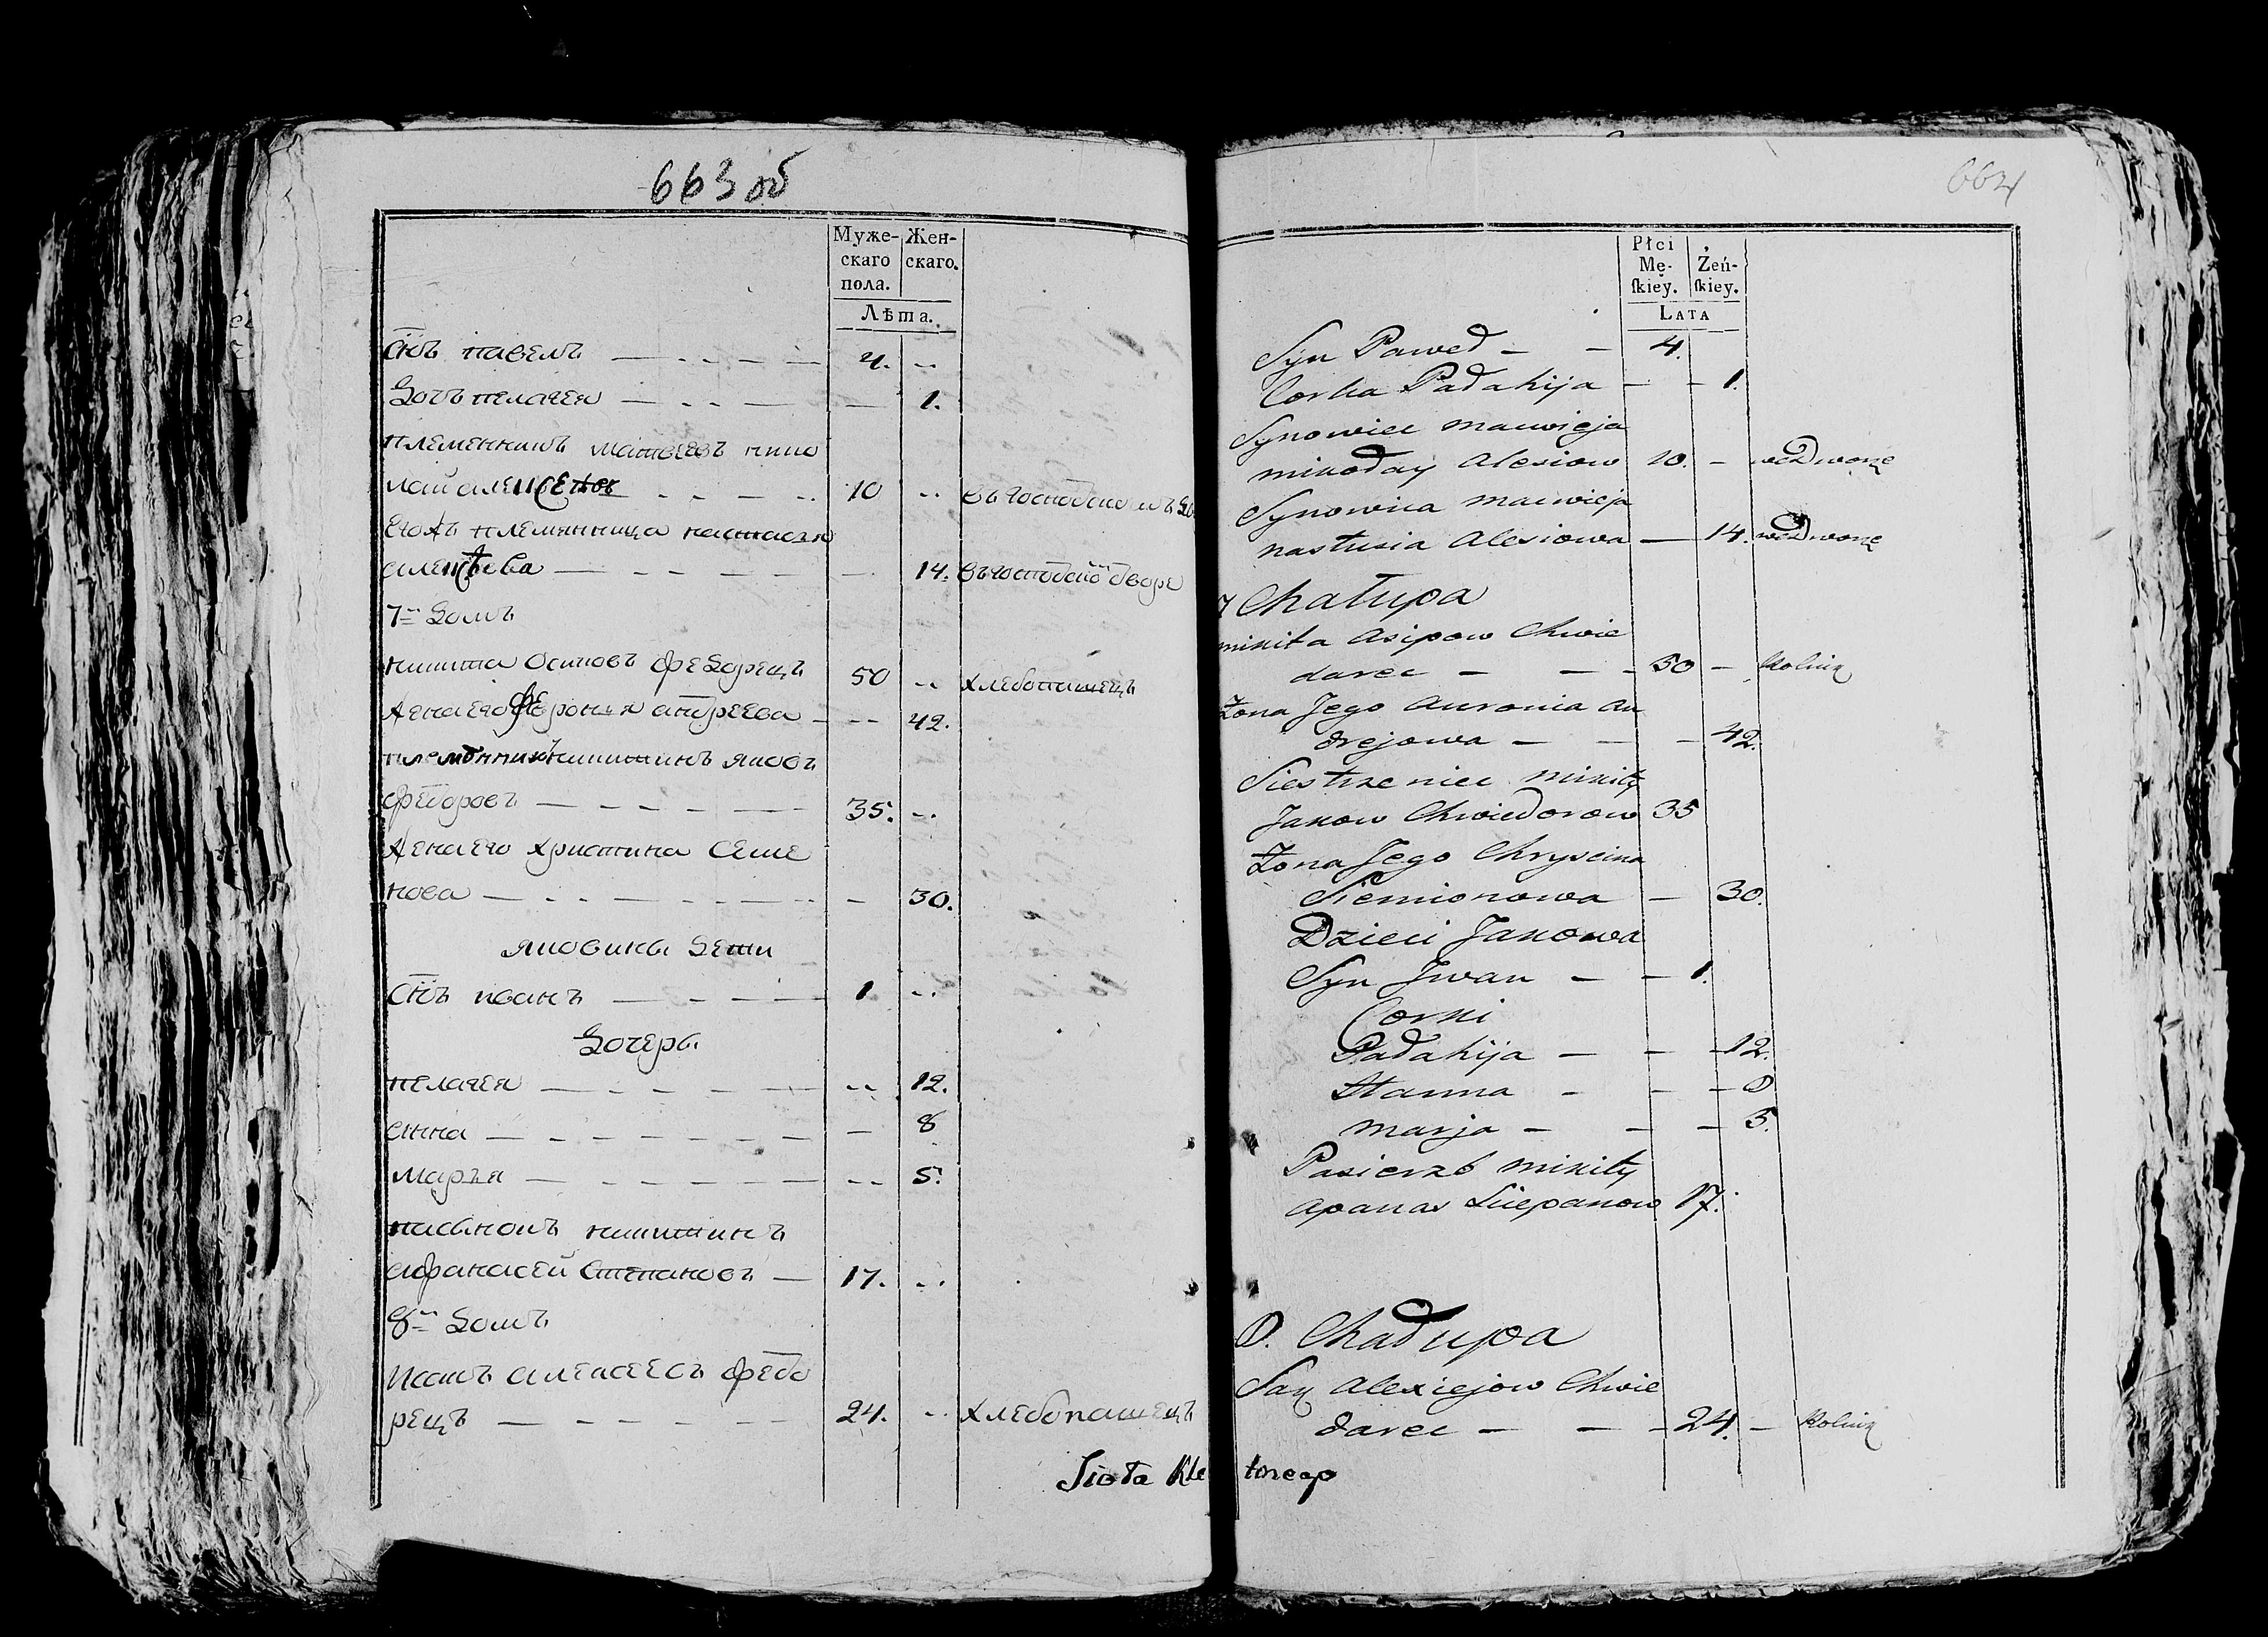 663 об
Муже- Жен-
скаго скаго.
пола.
Лѣта.
Снъ павелъ 4.
Дочь пелагея 1.
племенникъ матвеевъ нико
лай алексеевъ 10 въ господскомъ до
Егожъ племянница настасья
алексѣева 14. въ господскомъ дворе
7й домъ
никита осиповъ федорецъ 50 хлебопашецъ
жена его феронья андреева 42.
племянникъ никитинъ яковъ
федоровъ 35.
жена его христина семе
нова 30.
яковины дети
Снъ иванъ 1
дочеры
пелагея 12.
анна 8
марья 5.
пасынокъ никитинъ
афанасей степановъ 17.
8й домъ
Исакъ алексеевъ федо
рецъ 24. хлебопашецъ
664
Płci
Mę- Żeń-
skiey. skiey.
LATA
Syn Paweł 4.
Corka Pałahija 1.
Synowiec maciwieja
mikołay Alesiow 10. we Dworze
Synowica maciwieja
nastusia Alesiowa 14. we Dworze
7 Chałupa
mikita Asipow Chwie
darec 50 Rolnik
Żona Jego Auronia An
drejowa 42.
Siestrzeniec mikity
Jakow Chwiedorow 35
Żona Jego Chryscina
Siemionowa 30.
Dzieci Jakowa
Syn Jwan 1.
Corki
Pałahija 12.
Hanna 8
marja 5.
Pasierzb mikity
apanas Sciepanow 17.
8. Chałupa
Sak Alexiejow Chwie
darec 24. Rolnik